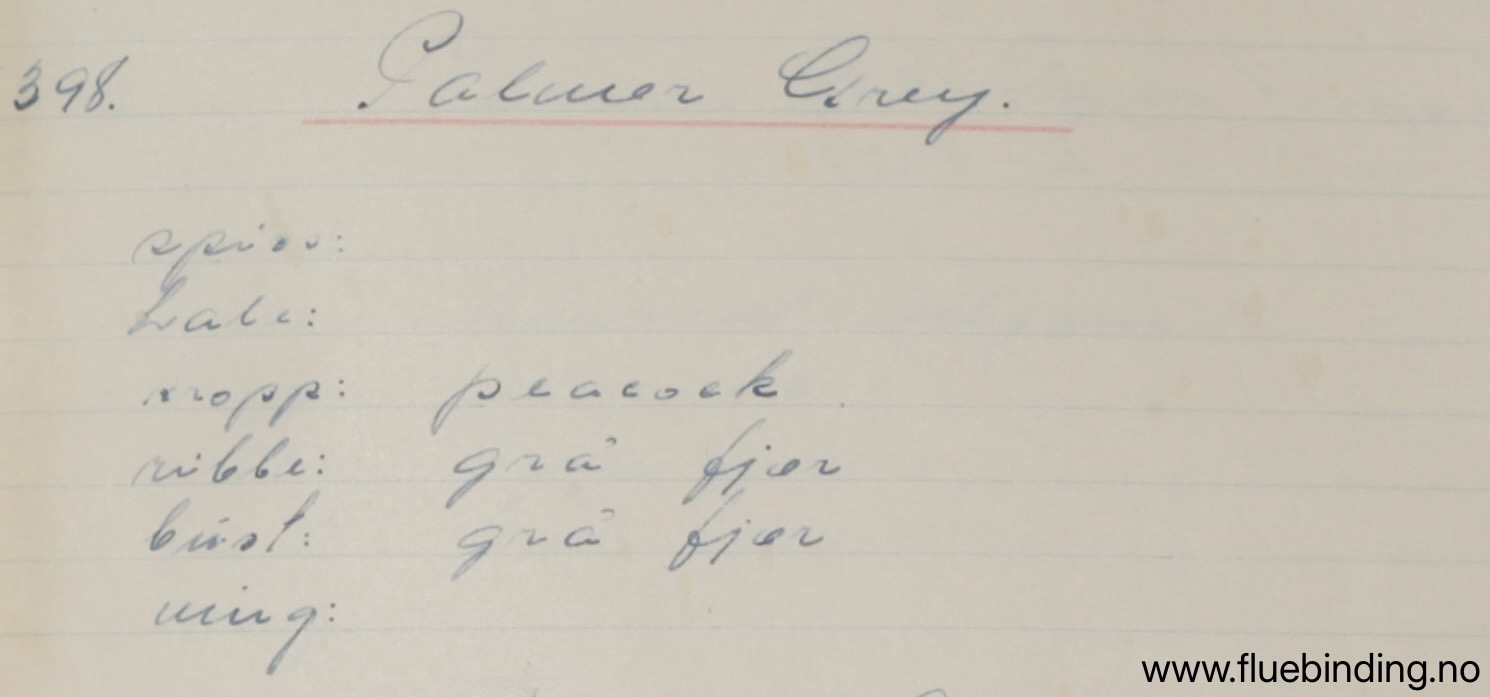 398. Palmer Grey.
spiss:
hale:
kropp: peacock
ribbe: grå fjær
büst: grå fjær
ving:
www.fluebinding.no